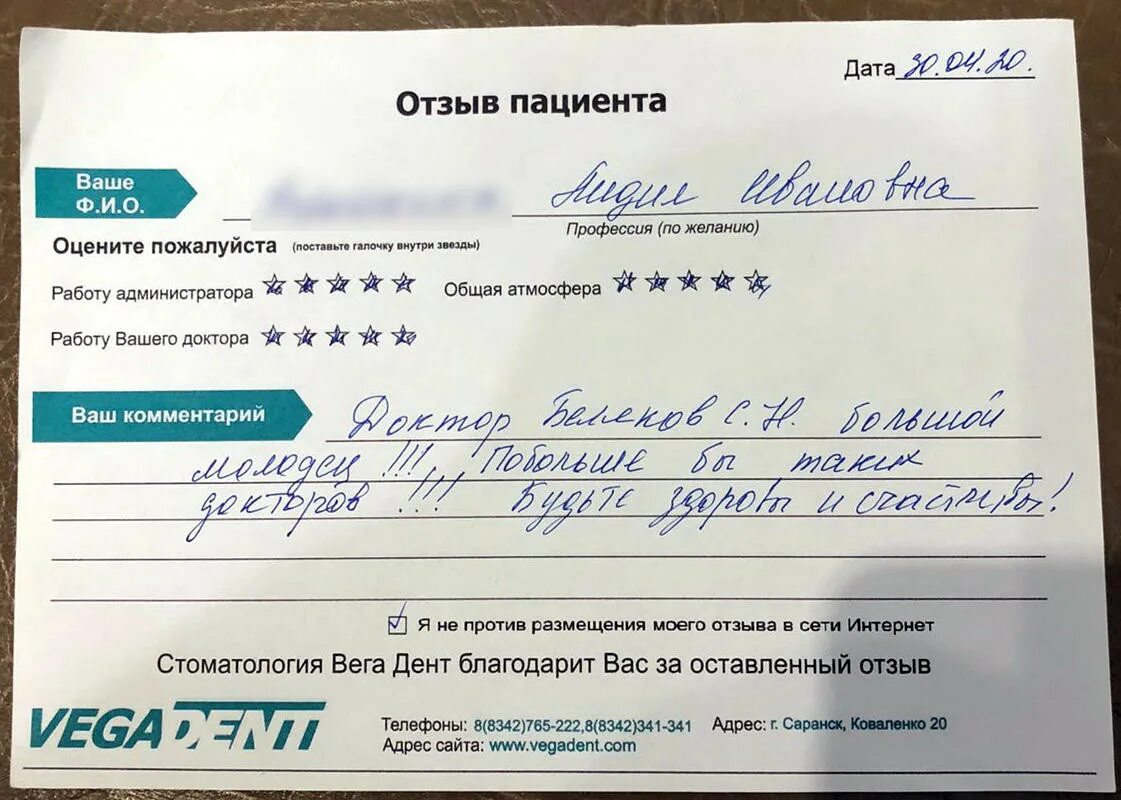 Дата 30.04.20.
Отзыв пациента
Ваше
Ф.И.О.
Лидия Ивановна
Профессия (по желанию)
Оцените пожалуйста (поставьте галочку внутри звезды)
Работу администратора
Общая атмосфера
Работу Вашего доктора
Ваш комментарий
Доктор Беляков С.Н. большой
молодец !!! Побольше бы таких
докторов !!! Будьте здоровы и счастливы!
Я не против размещения моего отзыва в сети Интернет
Стоматология Вега Дент благодарит Вас за оставленный отзыв
VEGADENT
Телефоны: 8(8342)765-222,8(8342)341-341 Адрес: г. Саранск, Коваленко 20
Адрес сайта: www.vegadent.com